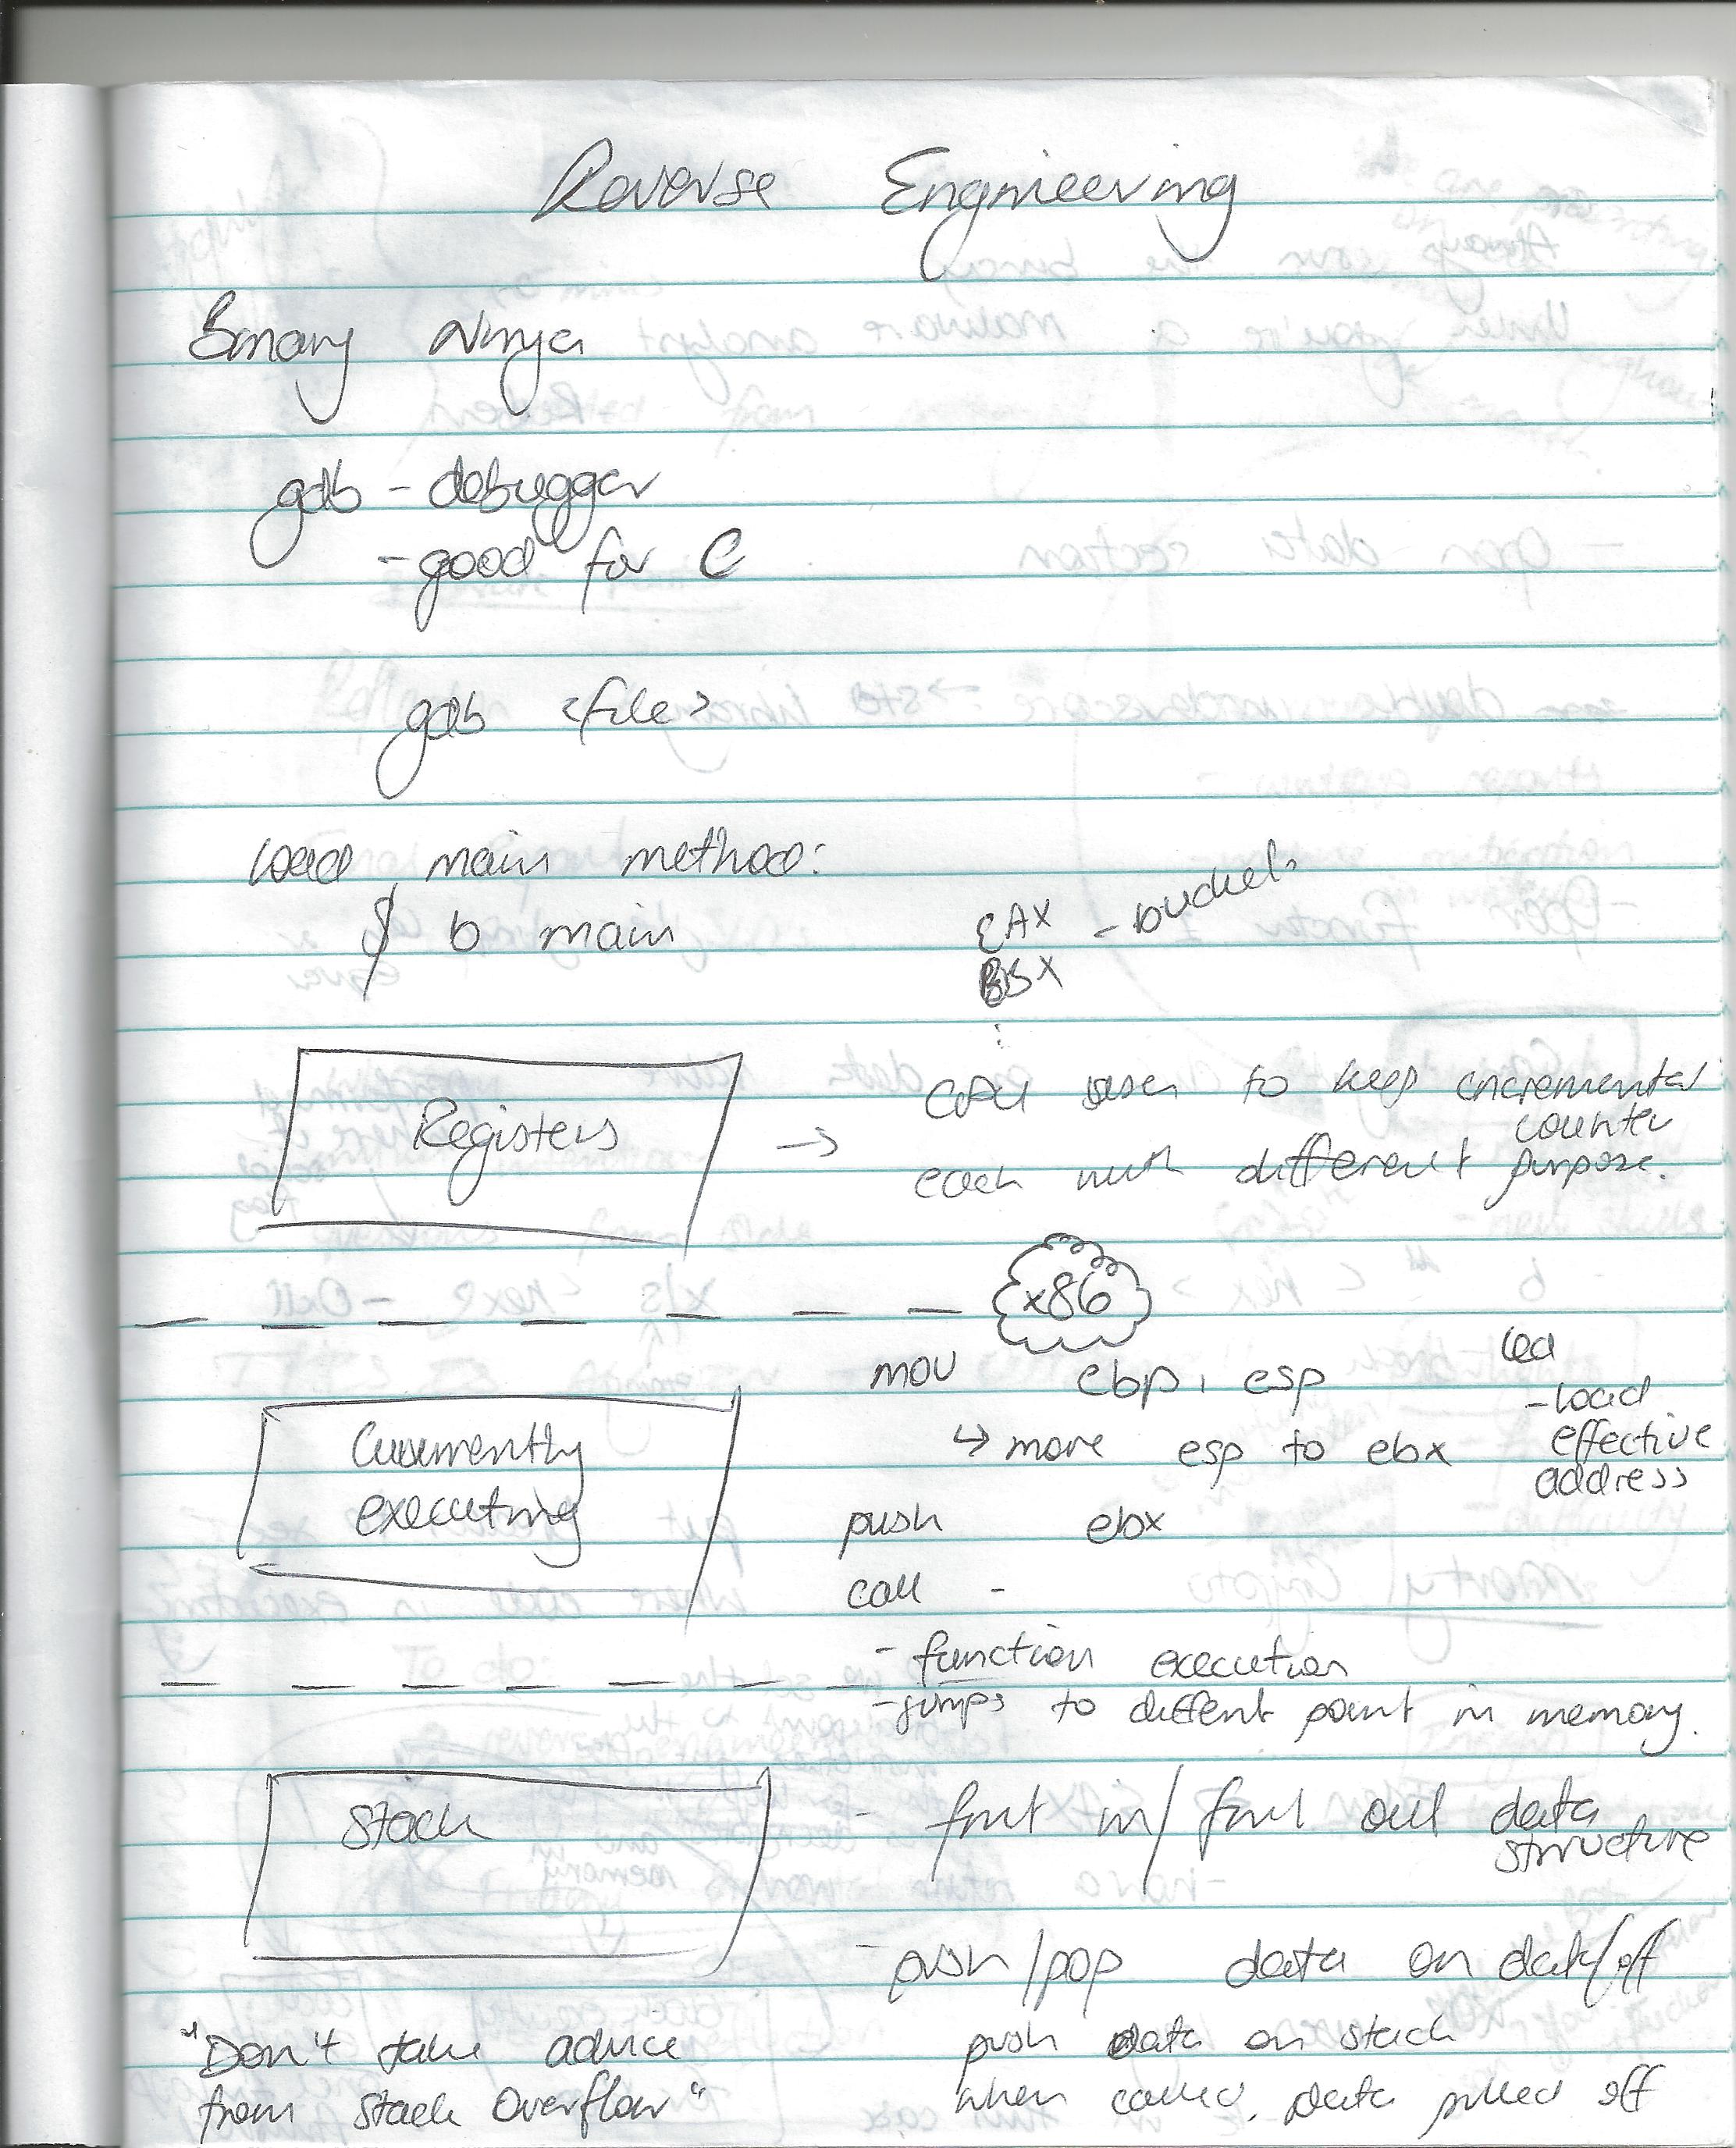 Reverse Engineering
Binary Ninja
gdb - debugger
- good for C
gdb <file>
Load main method:
$ b main
EAX - buckets
BSX
:
Registers
→ CPU uses to keep incremental
counter
each with different purpose.
x86
mov ebp, esp
↳ move esp to ebx
lea
- load
effective
address
Currently
executing
push ebx
call -
- function execution
- jumps to different point in memory.
Stack
- first in/ first out data
structure
- push/pop data on /off
push data on stack
when called, data pulled off
"Don't take advice
from Stack Overflow"